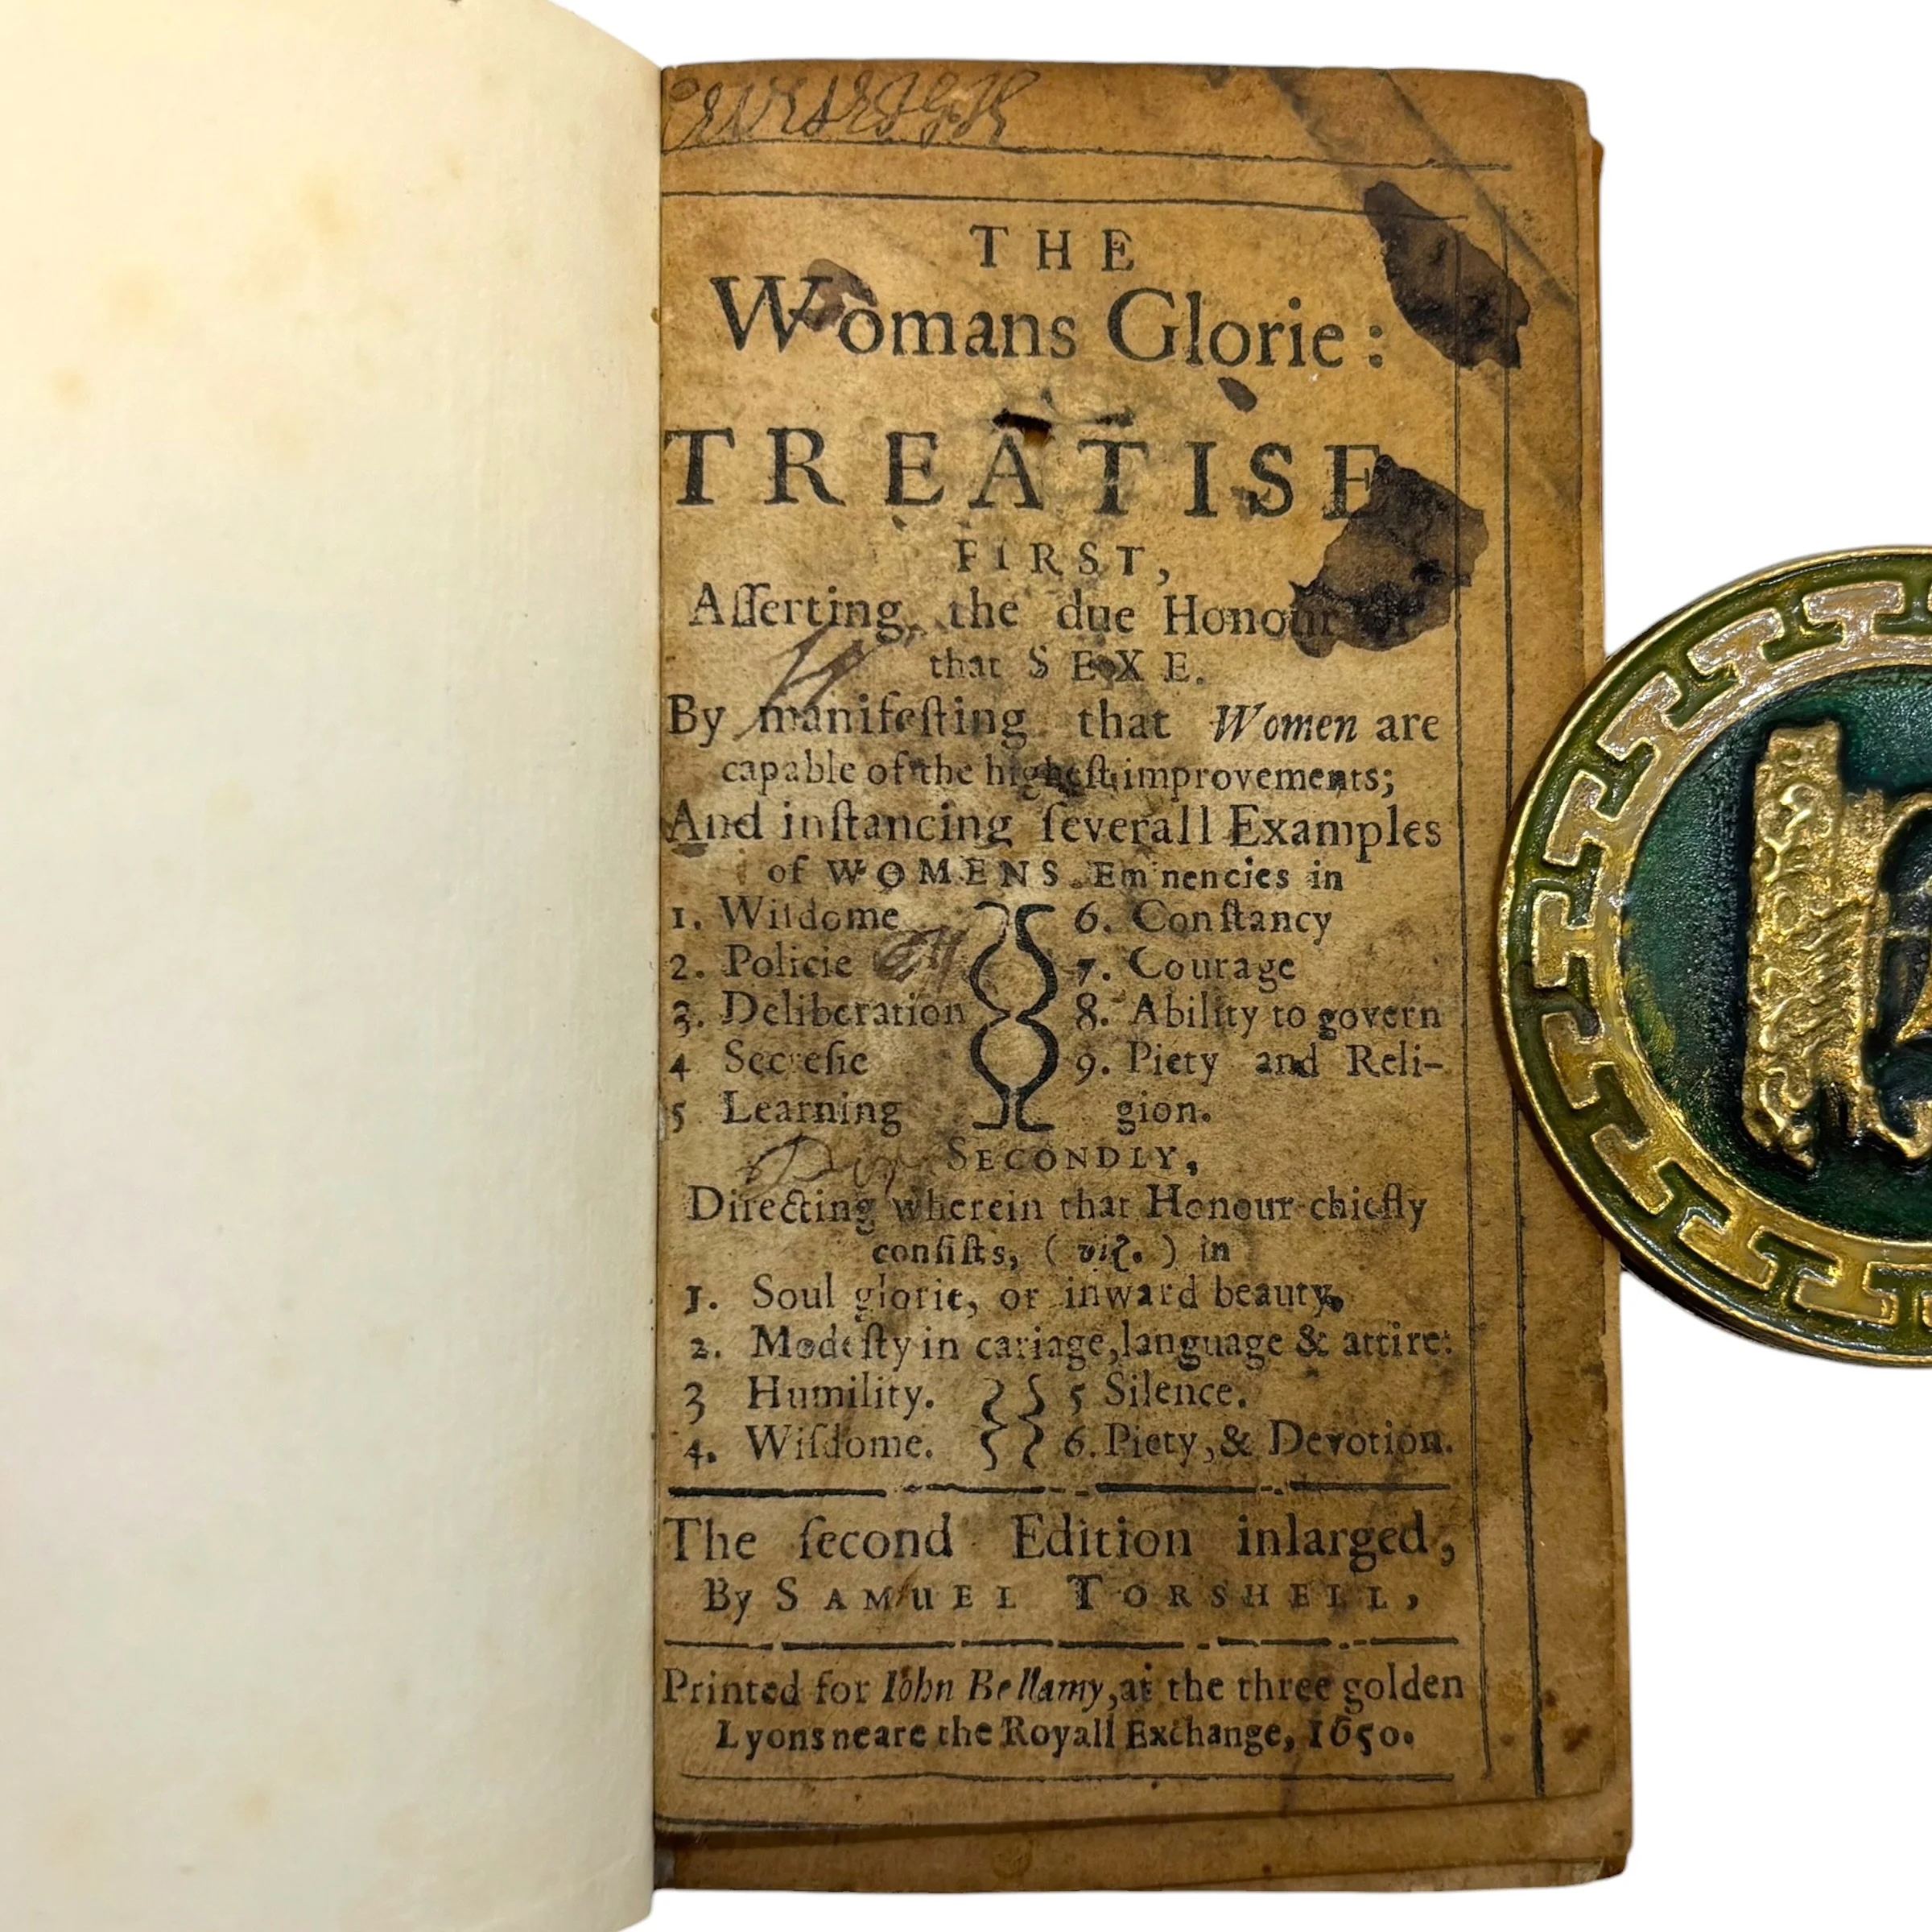 THE
Womans Glorie:
A
TREATISE
FIRST,
Aſſerting, the due Honour
that SEXE.
By manifeſting that Women are
capable of the higheſt improvements;
And inſtancing ſeverall Examples
of WOMENS Eminencies in
1. Wiſdome
2. Policie
3. Deliberation
4 Secreſie
5 Learning
6. Conſtancy
7. Courage
8. Ability to govern
9. Piety and Reli-
gion.
SECONDLY,
Directing wherein that Honour chiefly
conſiſts, (viz.) in
1. Soul glorie, or inward beauty,
2. Modeſty in cariage, language & attire:
3 Humility.
4. Wiſdome.
5 Silence.
6. Piety, & Devotion.
The ſecond Edition inlarged,
By SAMUEL TORSHELL,
Printed for Iohn Bellamy, at the three golden
Lyons neare the Royall Exchange, 1650.